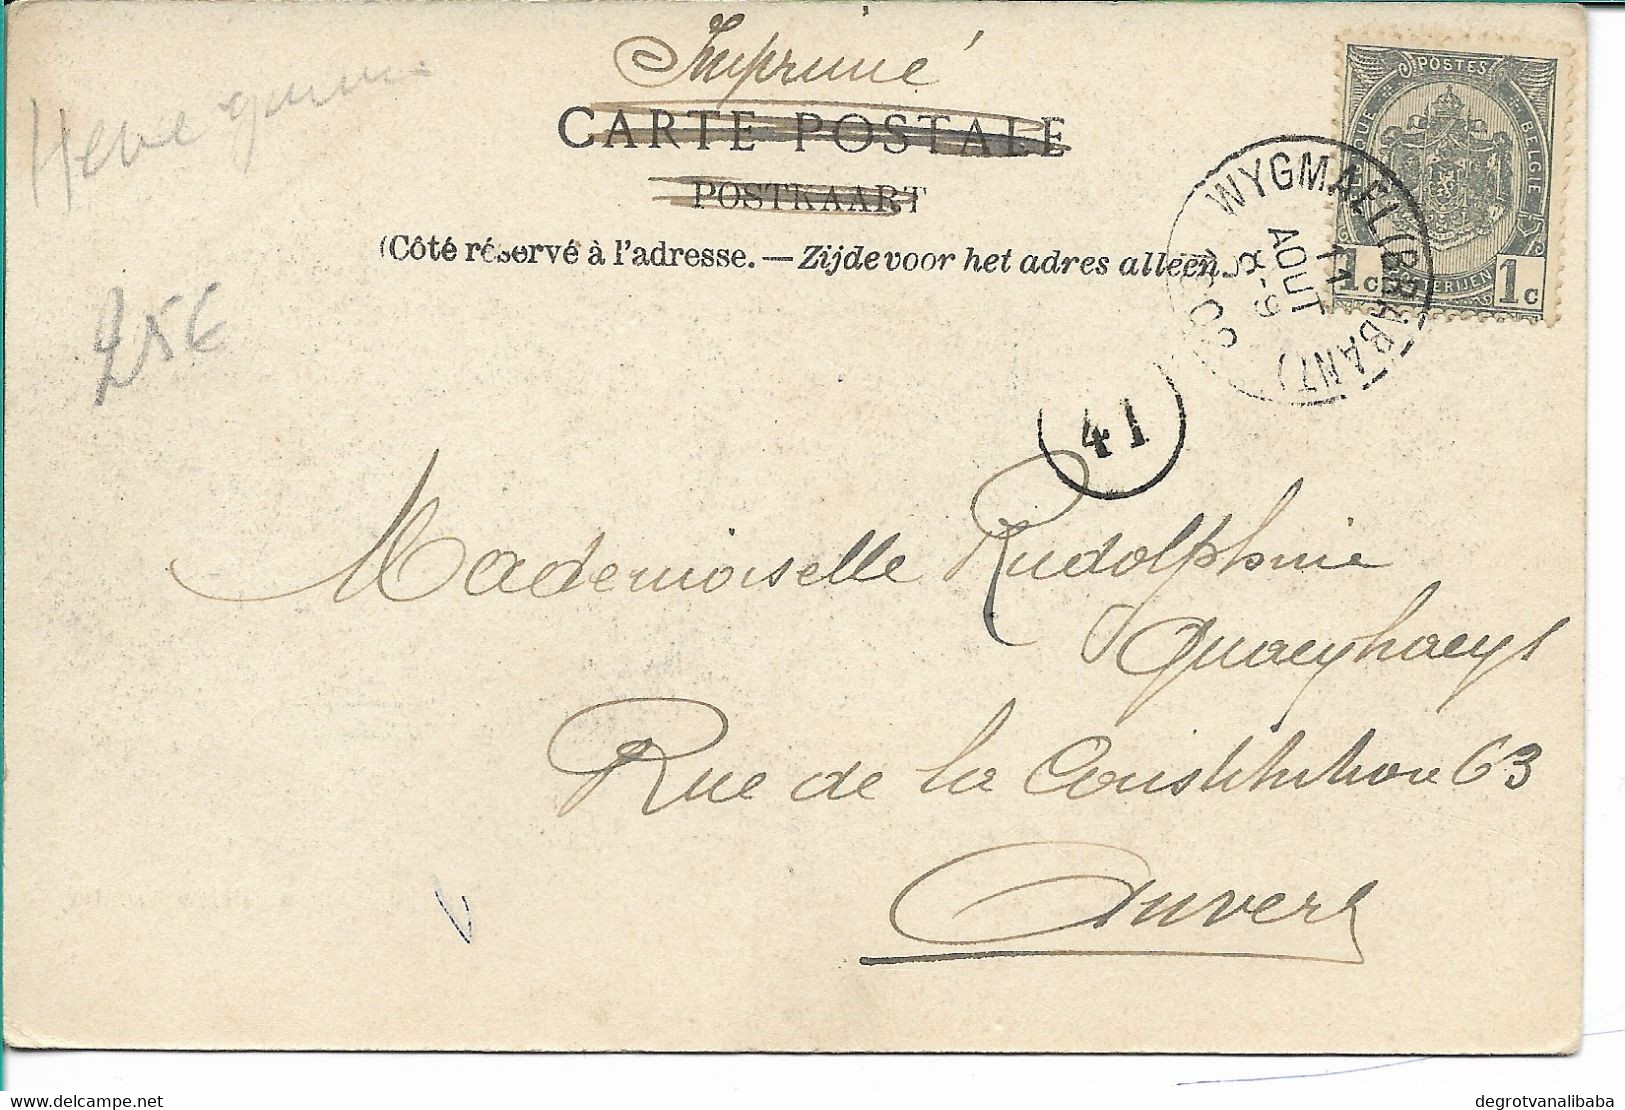 Imprimé
CARTE POSTALE
POSTKAART
(Côté réservé à l'adresse. — Zijde voor het adres alleen.
POSTES
BELGIQUE BELGIE
POSTERIJEN
1c 1c
WYGMAEL (BRABANT)
11
AOUT
8-9
41
25€
Mademoiselle Rudolphine
Quaeyhaeys
Rue de la Constitution 63
Anvers
degrotvanalibaba